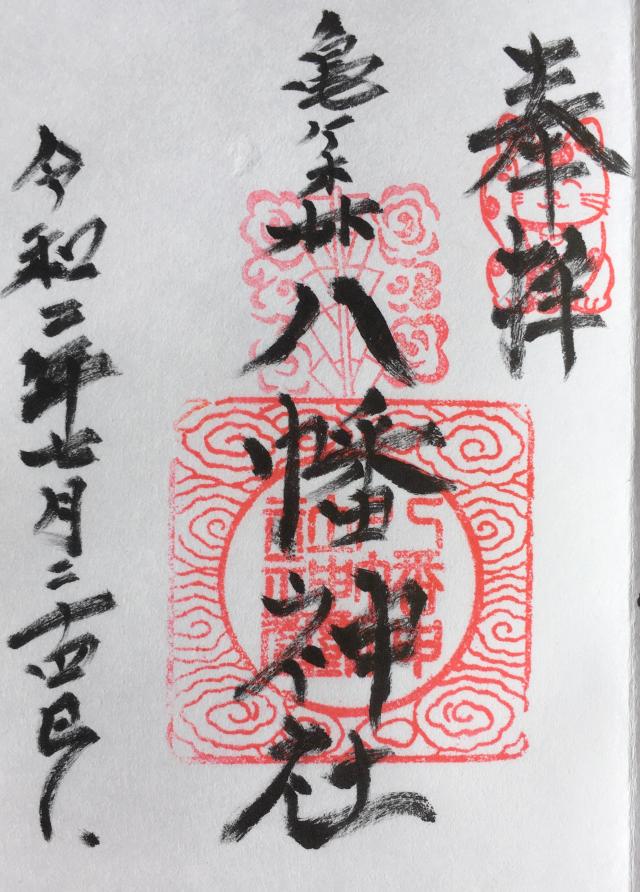 奉拝
亀ヶ森八幡神社
令和二年七月二十四日